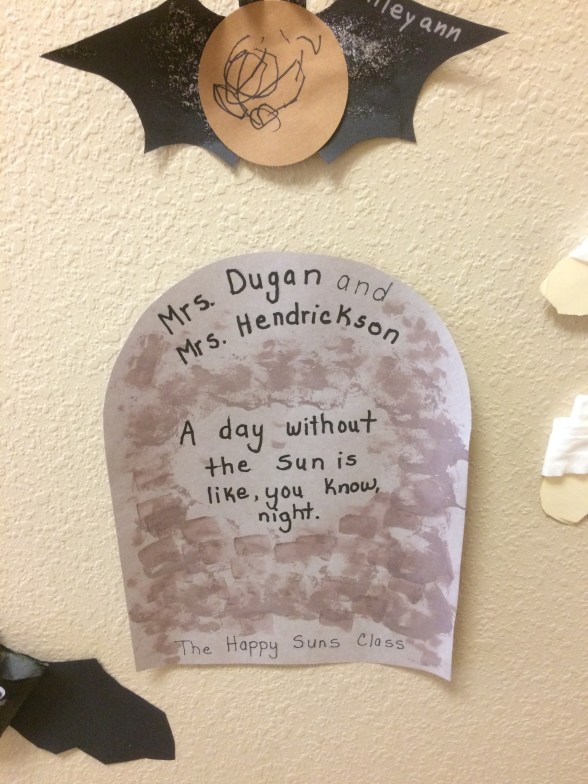 ann
Mrs. Dugan and
Mrs. Hendrickson
A day without
the Sun is
like, you know,
night.
The Happy Suns Class